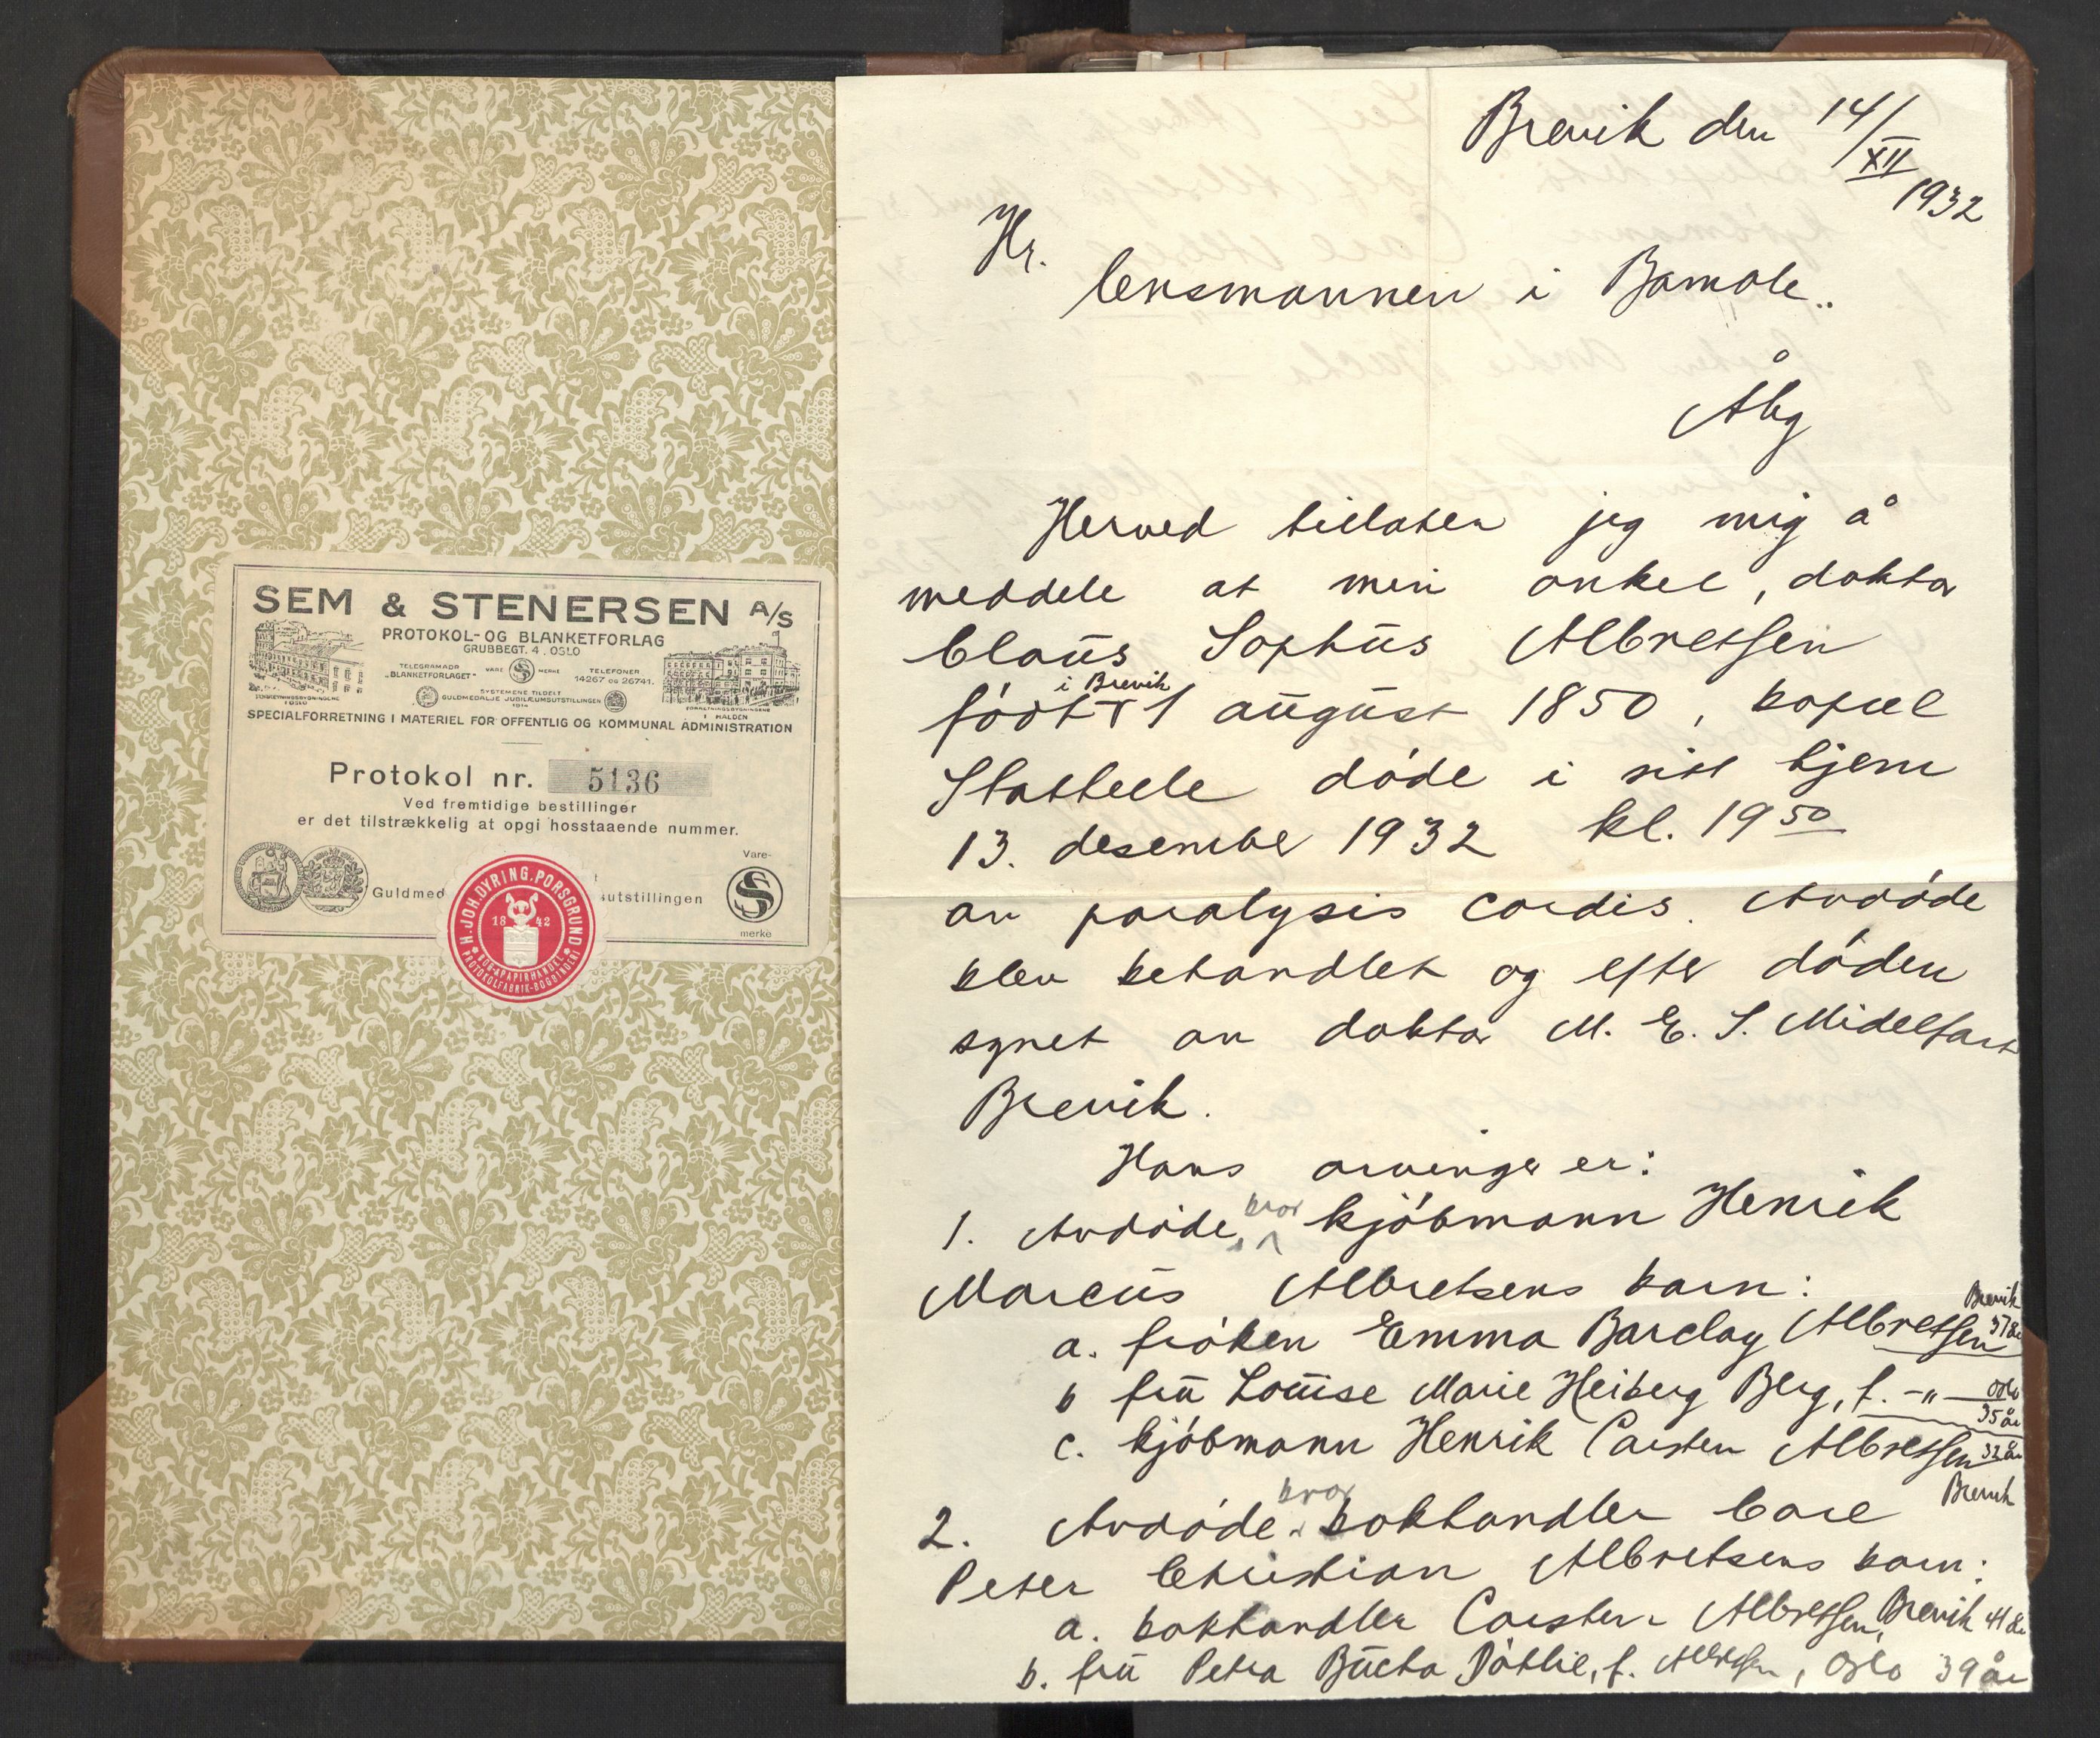 SEM & STENERSEN A/S
PROTOKOL- OG BLANKETFORLAG
GRUBBEGT. 4, OSLO
TELEGRAMADR
„BLANKETFORLAGET"
VARE MERKE
TELEFONER
14267 OG 26741.
SYSTEMENE TILDELT
GULDMEDALJE JUBILÆUMSUTSTILLINGEN
1914
FORRETNINGSBYGNINGENE
I OSLO
FORRETNINGSBYGNINGENE
I HALDEN
SPECIALFORRETNING I MATERIEL FOR OFFENTLIG OG KOMMUNAL ADMINISTRATION
Protokol nr. 5136
Ved fremtidige bestillinger
er det tilstrækkelig at opgi hosstaaende nummer.
Guldmed
utstillingen
Vare-
S
merke
H. JOH. DYRING. PORSGRUND
1842
BOG & PAPIRHANDEL
PROTOKOLFABRIK-BOGBINDERI
Brevik den 14/XII
1932
Hr.
lensmannen i Bamble..
Åby
Herved tillater jeg mig å
meddele at min onkel, doktor
Claus Sophus Albretsen
i Brevik
født 1 august 1850, bopæl
Stathelle døde i sitt hjem
13. desember 1932 kl. 19 50
av paralysis cordis. Avdøde
blev behandlet og efter døden
synet av doktor M. E. S. Midelfart
Brevik.
Hans arvinger er:
bror
1. Avdøde, kjøbmann Henrik
Marcus Albretsens barn:
Brevik
a. frøken Emma Barclay Albretsen 37 år
b fru Louise Marie Heiberg Berg, f. -„- Oslo
35 år
c. kjøbmann Henrik Carsten Albretsen 32 år
Brevik
bror
2. Avdøde bokhandler Carl
Peter Christian Albretsens barn:
a. bokhandler Carsten Albretsen, Brevik 41 år
b. fru Petra Bucha Døhlie, f. Albretsen, Oslo 39 år